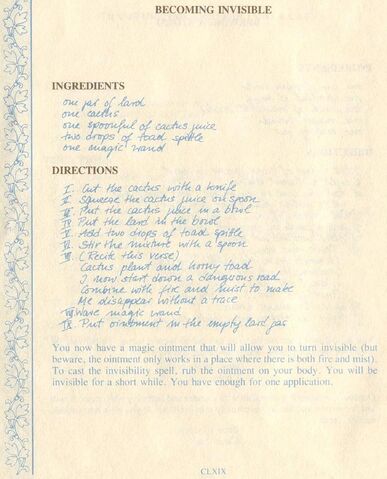 BECOMING INVISIBLE
INGREDIENTS
one jar of lard
one cactus
one spoonful of cactus juice
two drops of toad spittle
one magic wand
DIRECTIONS
I. Cut the cactus with a knife
II. Squeeze the cactus juice on spoon
III. Put the cactus juice in a bowl
IV. Put the lard in the bowl
V. Add two drops of toad spittle
VI. Stir the mixture with a spoon
VII. (Recite this verse)
Cactus plant and horny toad
I now start down a dangerous road
Combine with fire and mist to make
Me disappear without a trace
VIII. Wave magic wand
IX. Put ointment in the empty lard jar
You now have a magic ointment that will allow you to turn invisible (but
beware, the ointment only works in a place where there is both fire and mist).
To cast the invisibility spell, rub the ointment on your body. You will be
invisible for a short while. You have enough for one application.
CLXIX